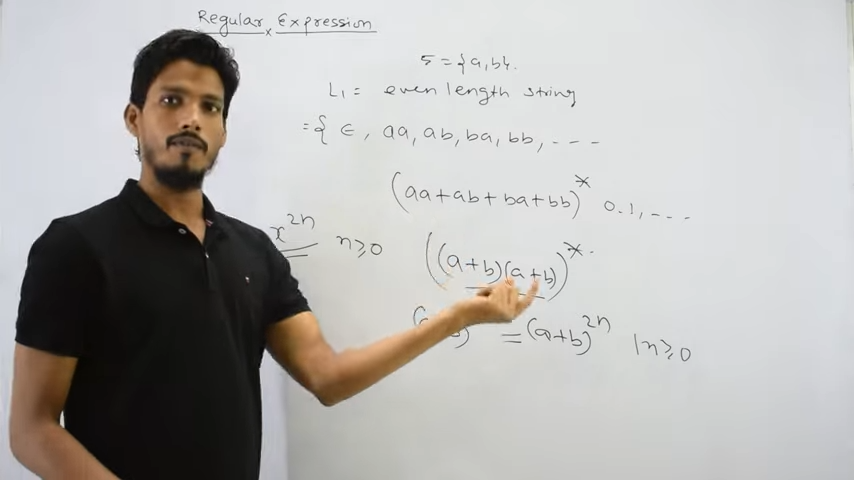 Regular Expression
Σ = {a,b}.
L₁ = even length string
= { ∈, aa, ab, ba, bb, - - -
(aa+ab+ba+bb)* 0.1, - - -
x²ⁿ n≥0 ((a+b)(a+b))*
= (a+b)²ⁿ |n≥0